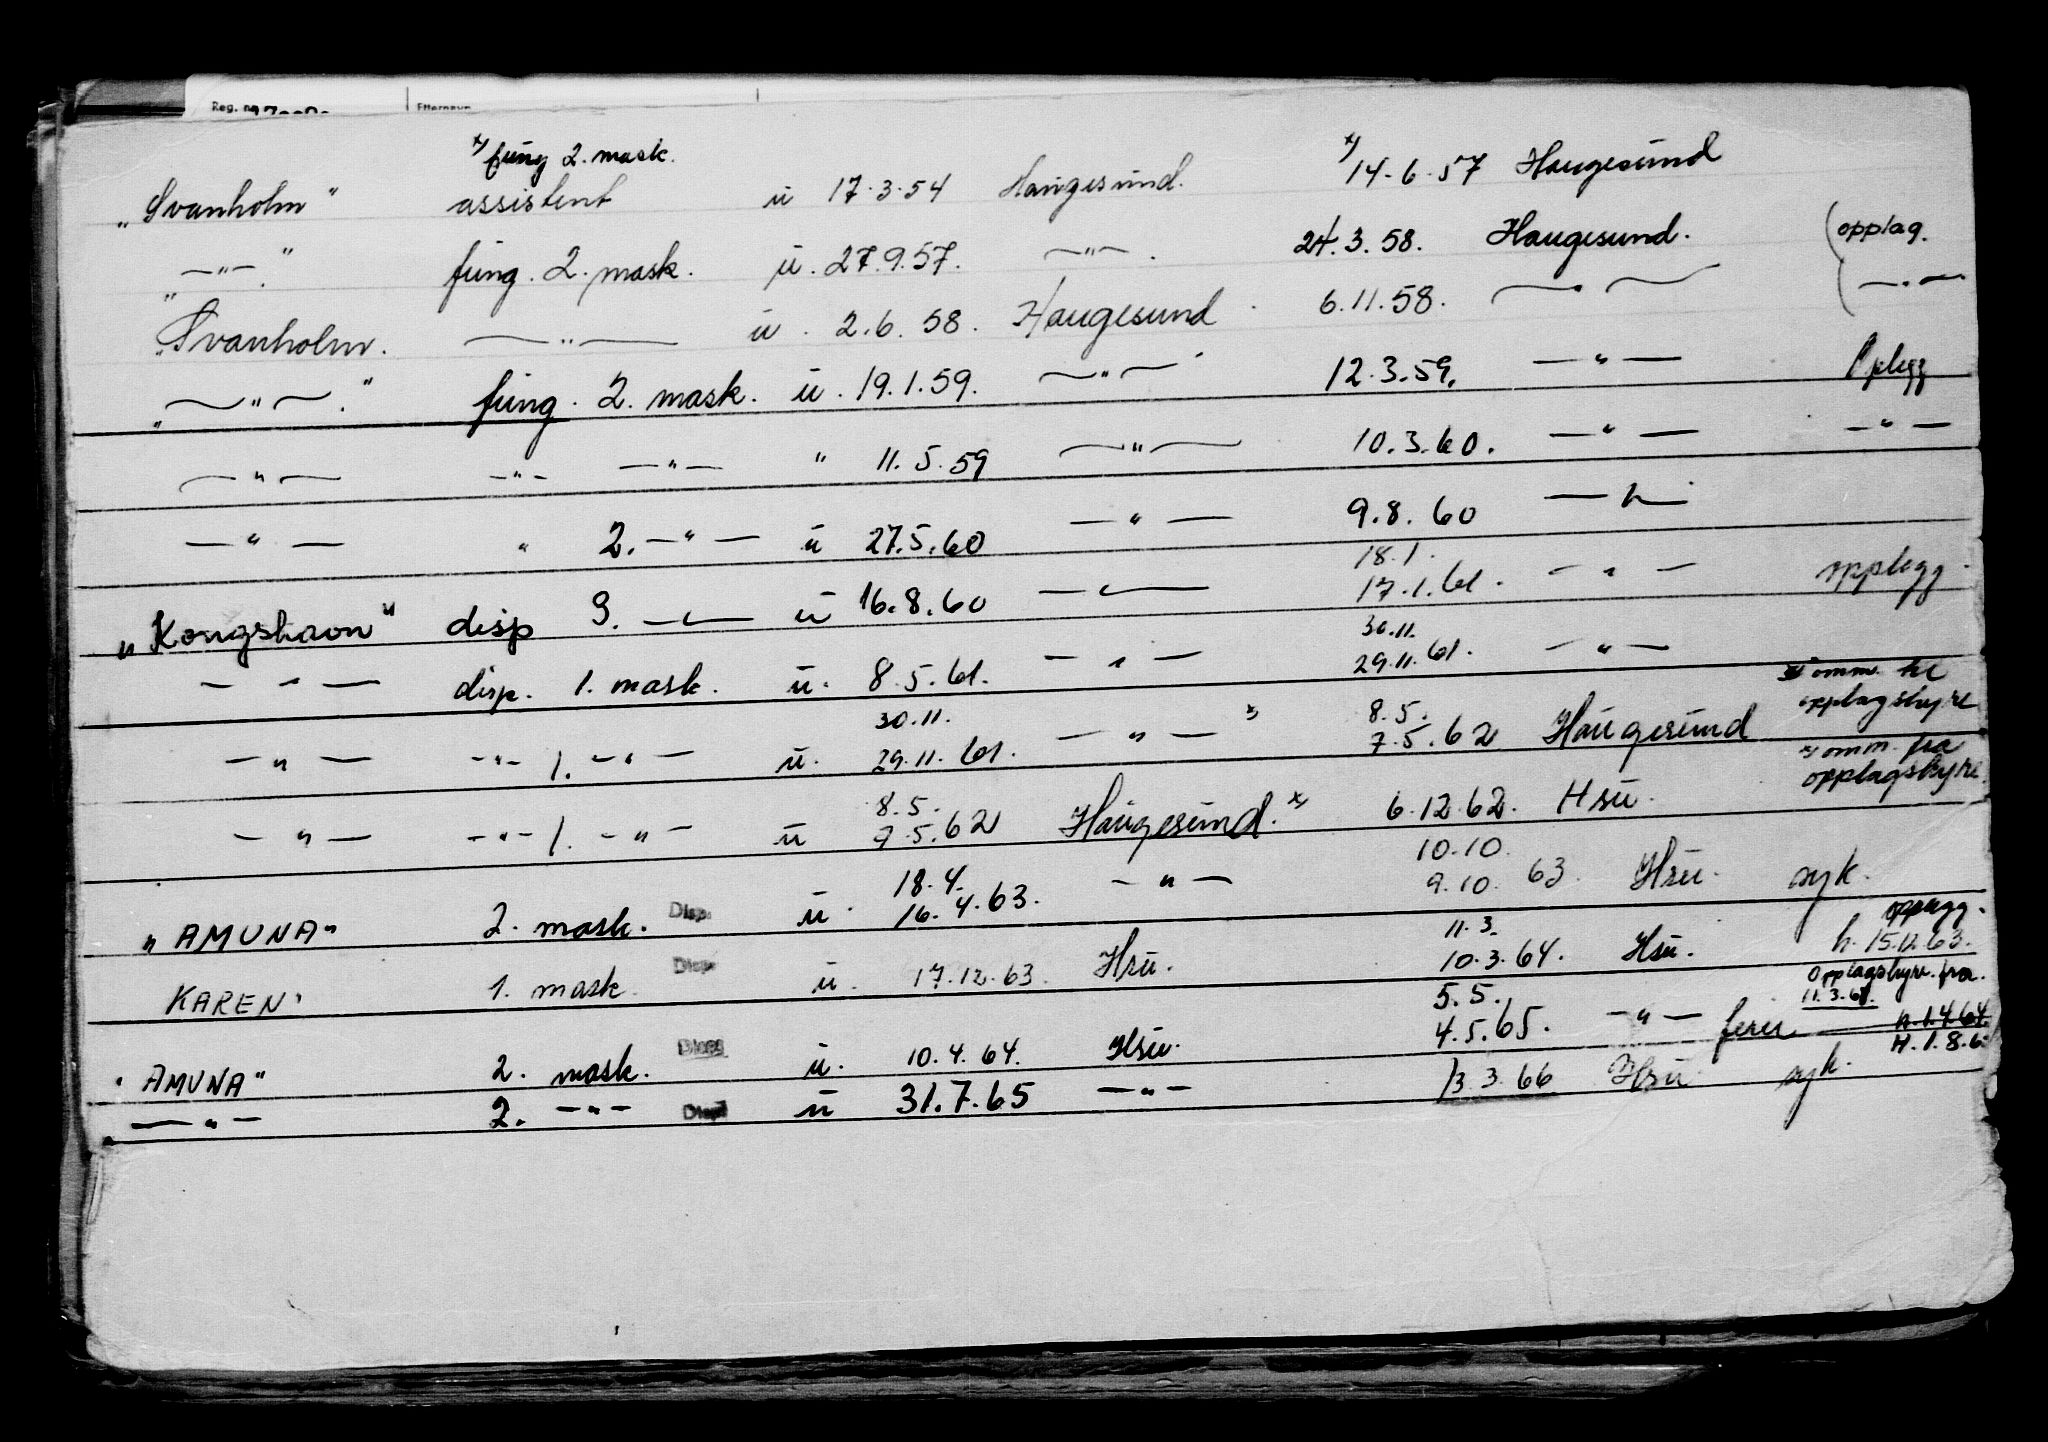 Reg. nr.
Etternavn
x) fung 2. mask.
„Svanholm" assistent u 17.3.54 Haugesund. x) 14.6.57 Haugesund
„—"—." fung. 2. mask. u. 27.9.57. —"—. 24.3.58. Haugesund. (opplag.
„Svanholm. —"— u. 2.6.58. Haugesund. 6.11.58. —"— (—"—
„—"—." fung. 2. mask. u. 19.1.59. —"— 12.3.59. —"— Oplegg
—"— —"— —"— " 11.5.59 —"— 10.3.60. —"— —"—
—"— " 2.—"— u 27.5.60 —"— 9.8.60 —"—
18.1.
„Kongshavn" disp 3. —"— u 16.8.60 —"— 17.1.61. —"— opplegg.
30.11.
—"— disp. 1. mask. u. 8.5.61. —"— 29.11.61. —"—
30.11. 8.5. x) omm. til
—"— —"— 1. —"— u. 29.11.61. —"— x) 7.5.62 Haugesund opplagshyre
8.5. x) omm. fra
—"— —"— 1. —"— u 7.5.62 Haugesund. x) 6.12.62. Hsu. opplagshyre.
18.4. 10.10
„AMUNA" 2. mask. Disp. u. 16.4.63. —"— 9.10. 63. Hsu. syk.
11.3. opplegg.
KAREN" 1. mask. Disp. u. 17.12.63. Hsu. 10.3.64. Hsu. h. 15.12.63.
5.5. Opplagshyre. fra.
11.3.64.
"AMUNA" 2. mask. Disp. u. 10.4.64. Hsu. 4.5.65. —"— ferie H.1.4.64.
H.1.8.6
—"— 2. —"— Disp u 31.7.65 —"— 13.3.66 Hsu syk.